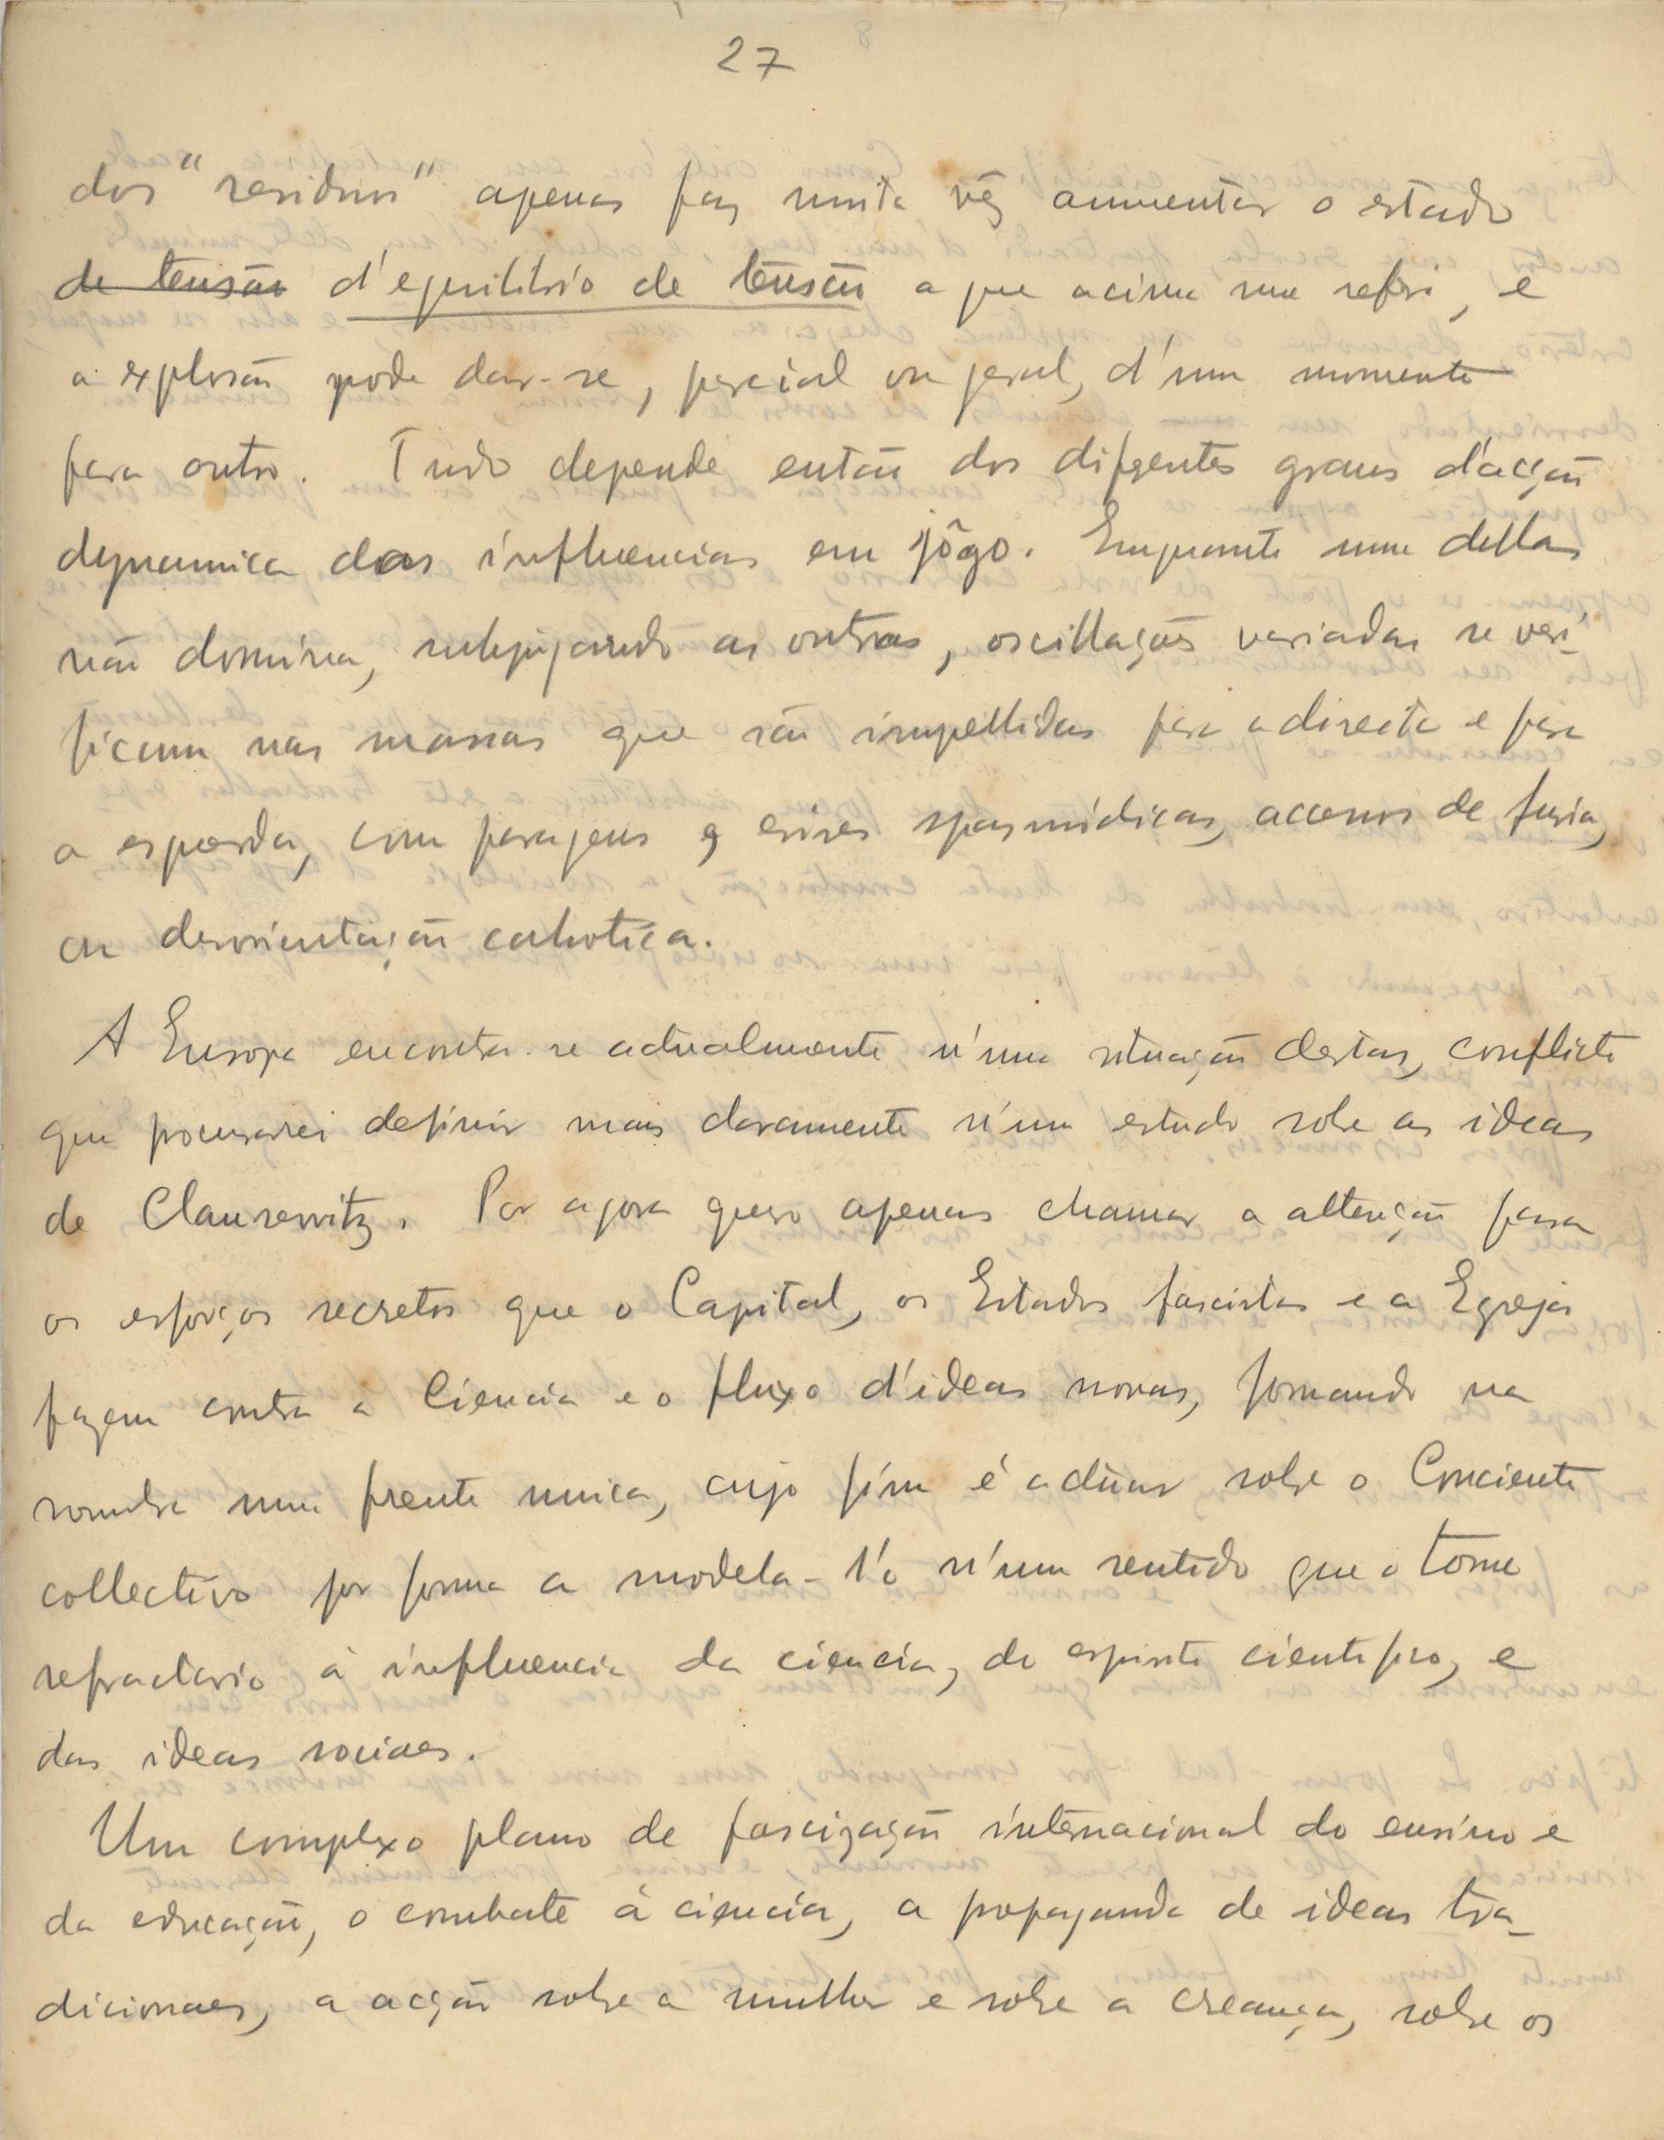 27
dos "residuos" apenas faz muita vêz aumentar o estado
de tensão d'equilíbrio de tensão a que acima me referi, e
a explosão pode dar-se, parcial ou geral, d'um momento
para outro. Tudo depende então dos difrentes graus d'acção
dynamica das influencias em jôgo. Emquanto uma dellas
não domina, subjugando as outras, oscillações variadas se veri-
ficam nas massas que são impellidas para a directa e para
a esquerda, com paragens e crises spasmódicas, accessos de furia,
ou desorientação cahotica.
A Europa encontra-se actualmente, n'uma situação destas, conflicto
que procurarei definir mais claramente n'um estudo sobre as ideas
de Clausewitz. Por agora quero apenas chamar a attenção para
os esforços secretos que o Capital, os Estados fascistas e a Egreja
fazem contra a Ciencia e o fluxo d'ideas novas, formando na
sombra uma frente unica, cujo fim é actuar sobre o Conciente
collectivo por forma a modela-l'o n'um sentido que o torne
refractario à influencia da ciencia, do espirito cientifico, e
das ideas sociaes.
Um complexo plano de fascização internacional do ensino e
da educação, o combate à ciencia, a propaganda de ideas tra-
dicionaes, a acção sobre a mulher e sobre a creança, sobre os